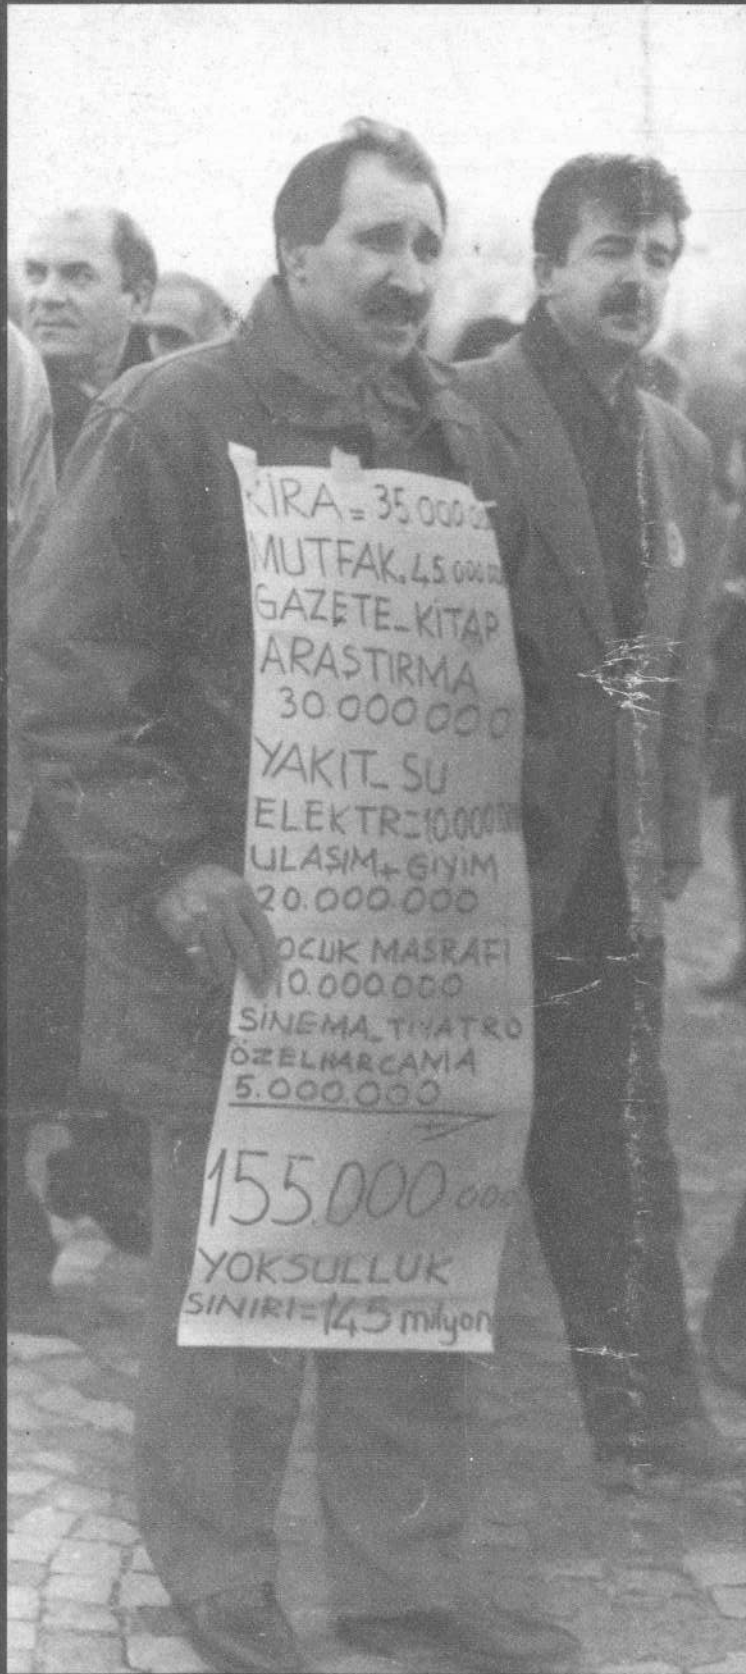 KİRA = 35.000.00
MUTFAK. 45.000.00
GAZETE_KİTAP
ARAŞTIRMA
30.000.000
YAKIT_SU
ELEKTR=10.000
ULAŞIM + GİYİM
20.000.000
OCUK MASRAFI
10.000.000
SİNEMA_TİYATRO
ÖZEL HARCAMA
5.000.000
+
155.000.000
YOKSULLUK
SINIRI=145 milyon